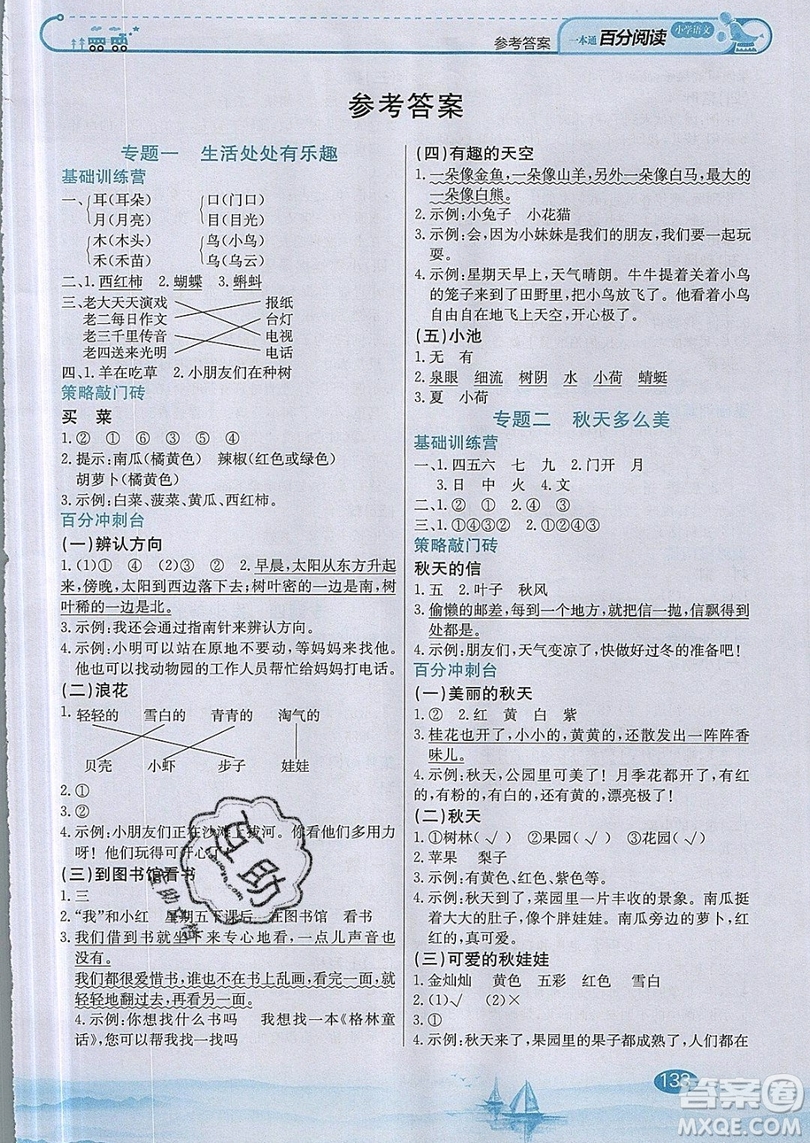 参考答案
一本通 百分阅读 小学语文
参考答案
专题一 生活处处有乐趣
基础训练营
一、耳(耳朵) 口(门口)
月(月亮) 目(目光)
木(木头) 鸟(小鸟)
禾(禾苗) 乌(乌云)
二、1.西红柿 2.蝴蝶 3.蝌蚪
三、老大天天演戏 报纸
老二每日作文 台灯
老三千里传音 电视
老四送来光明 电话
四、1.羊在吃草 2.小朋友们在种树
策略敲门砖
买 菜
1.② ① ⑥ ③ ④ ⑤
2.提示:南瓜(橘黄色) 辣椒(红色或绿色)
胡萝卜(橘黄色)
3.示例:白菜、菠菜、黄瓜、西红柿。
百分冲刺台
(一)辨认方向
1.(1)① ④ (2)① ④ 2.早晨,太阳从东方升起
来,傍晚,太阳到西边落下去;树叶密的一边是南,树
叶稀的一边是北。
3.示例:我还会通过指南针来辨认方向。
4.示例:小明可以站在原地不要动,等妈妈来找他。
他也可以找动物园的工作人员帮忙给妈妈打电话。
(二)浪花
1. 轻轻的 雪白的 青青的 淘气的
贝壳 小虾 步子 娃娃
2.①
3.②
4.示例:小朋友们正在沙滩上拔河。你看他们多用力
呀!他们玩得可开心了!
(三)到图书馆看书
1.三
2.“我”和小红 星期五下课后 在图书馆 看书
3.我们借到书就坐下来专心地看,一点儿声音也
没有。
我们都很爱惜书,谁也不在书上乱画,看完了,就
轻轻地翻过去。
4.示例:你想找什么书吗 我想找一本《格林童
话》,您可以帮我找一下吗
(四)有趣的天空
1.一朵像金鱼,一朵像山羊,另外一朵像白马,最大的
一朵像白熊。
2.示例:小兔子 小花猫
3.示例:会,因为小妹妹是我们的朋友,我们要一起玩
耍。
4.示例:星期天早上,天气晴朗。牛牛提着关着小鸟
的笼子来到田野里,把小鸟放飞了。他看着小鸟
自由自在地飞上天空,开心极了。
(五)小池
1.无 有
2.泉眼 细流 树阴 水 小荷 蜻蜓
3.夏 小荷
专题二 秋天多么美
基础训练营
一、1.四五六 七 九 2.门开 月
3.日 中 火 天 4.文
二、1.② ① 2.④ ③
三、1.①④③② 2.①②④③
策略敲门砖
秋天的信
1.五 2.叶子 秋风
3.偷懒的邮差,每到一个地方,就把信一抛,信飘得到
处都是。
4.示例:朋友们,天气变凉了,快快做好过冬的准备吧!
百分冲刺台
(一)美丽的秋天
1.② 2.红 黄 白 紫
3.桂花也开了,小小的,黄黄的,还散发出一阵阵香
味儿。
4.示例:秋天,公园里可美了!月季花开了,有红
的,有粉的,还有黄的,漂亮极了!
(二)秋天
1.①树林(√) ②果园(√) ③花园(√)
2.苹果 梨子
3.示例:有黄色、红色、紫色等。
4.示例:秋天来了,菜园里一片丰收的景象。南瓜挺
着大大的肚子,像个胖娃娃。南瓜旁边的萝卜,红
红的,真可爱。
(三)可爱的秋娃娃
1.金灿灿 黄色 五彩 红色 雪白
2.(1)√ (2)×
3.①
4.示例:秋天来了,果园里的果子都成熟了,人们都在
133
互助
答案圈
MXQE.COM